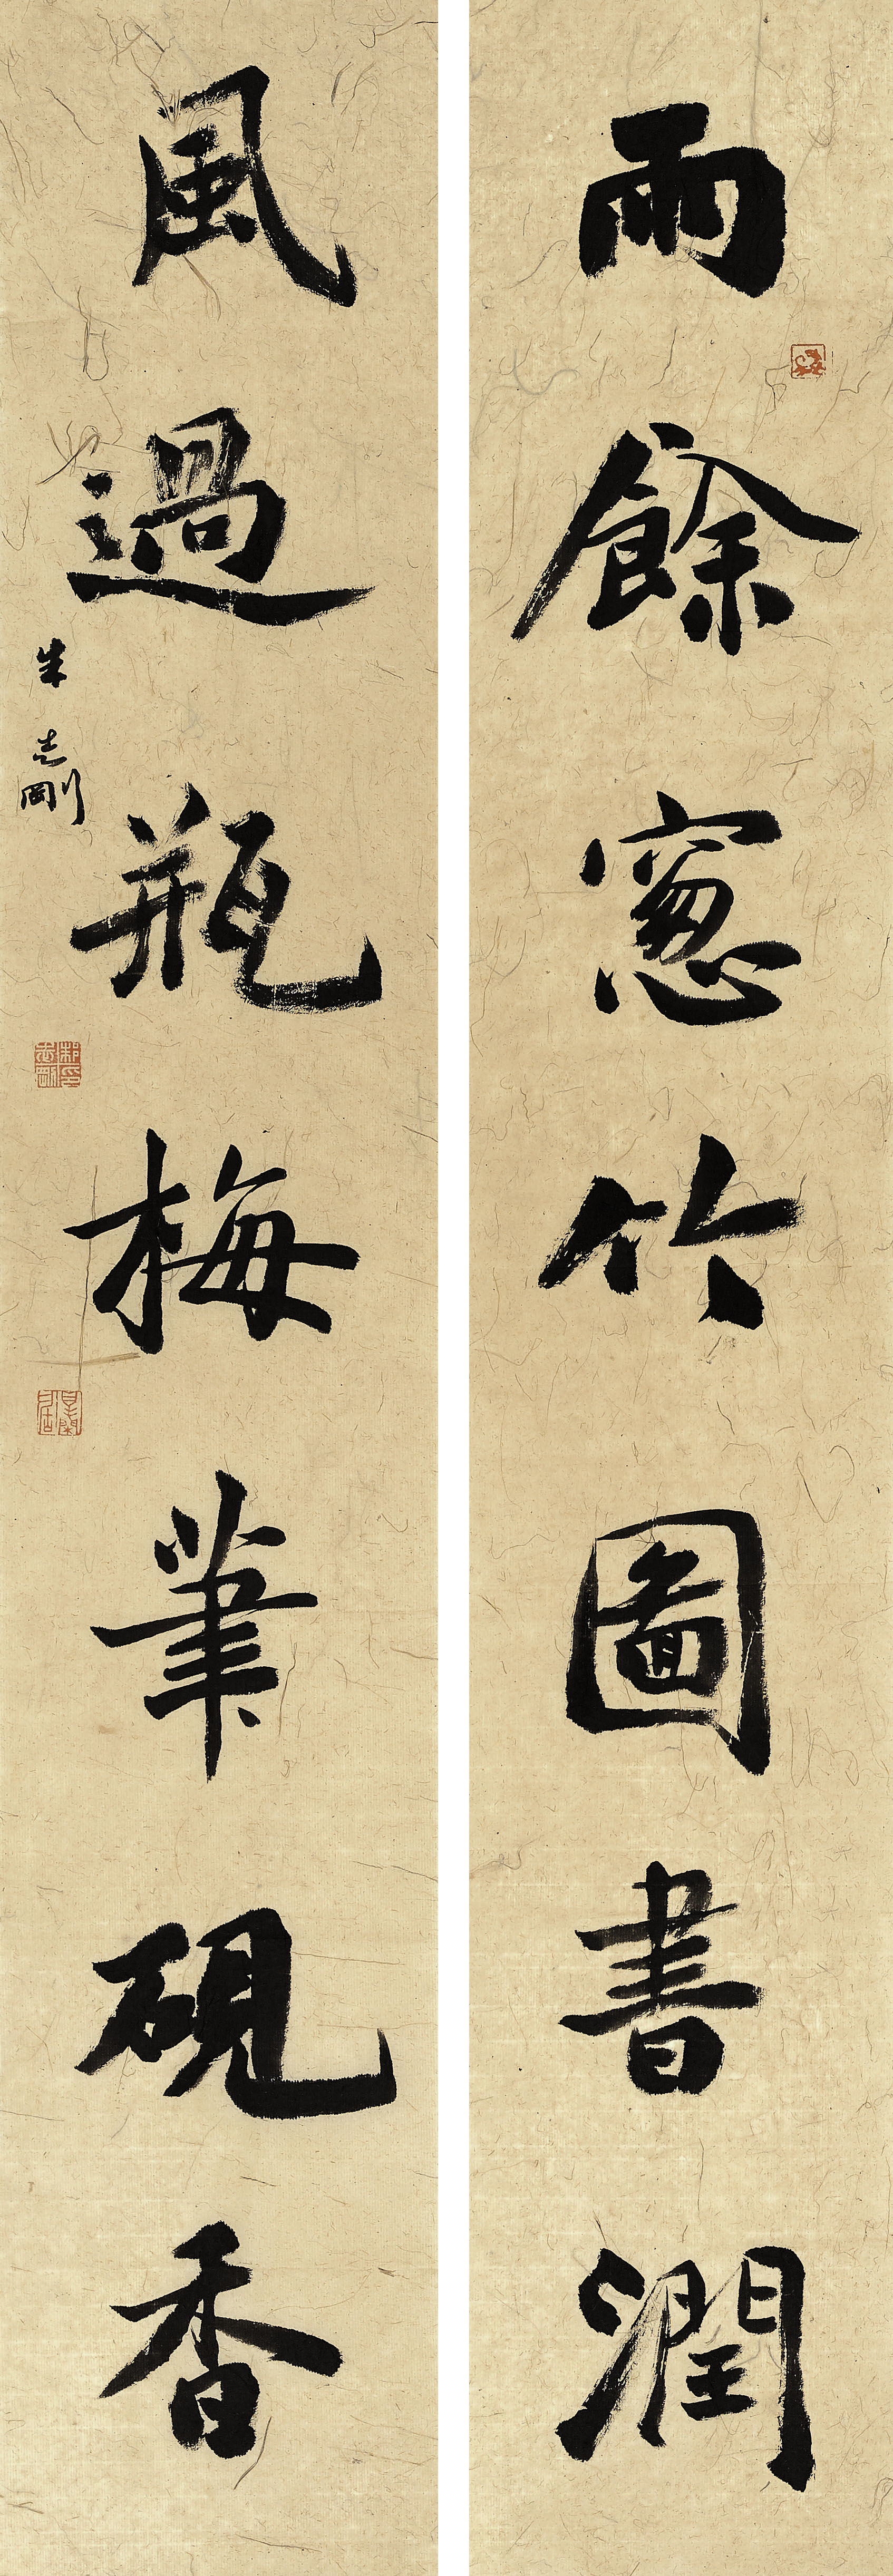 雨餘窓竹圖書潤
風過瓶梅筆硯香
朱志剛